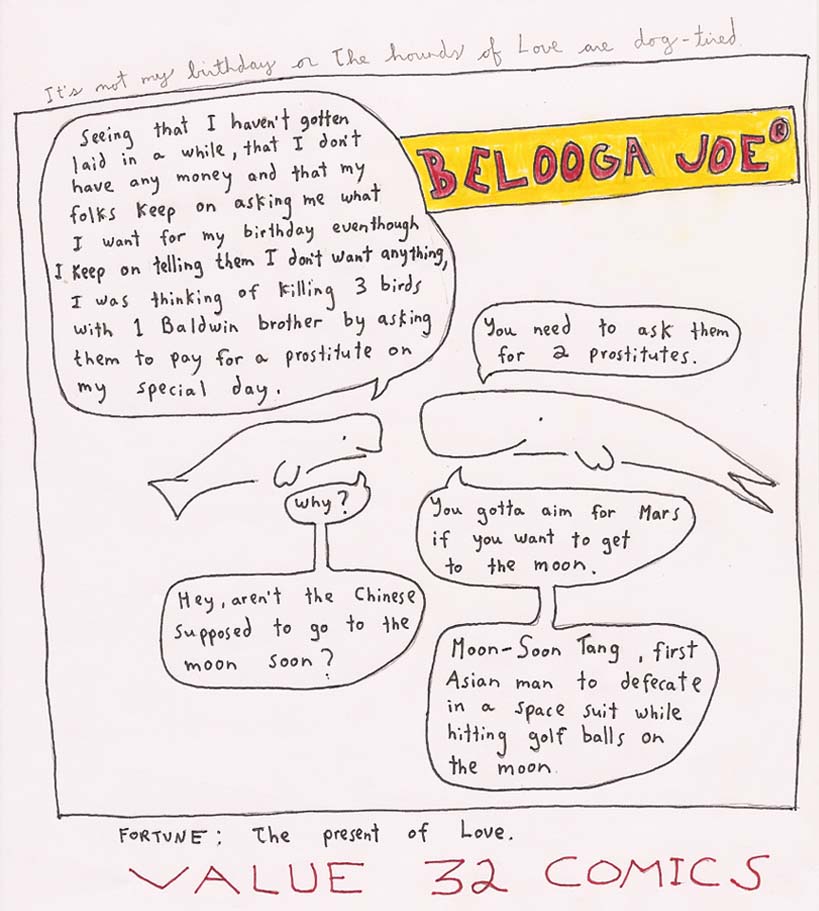 It's not my birthday or The hounds of Love are dog-tired
BELOOGA JOE®
Seeing that I haven't gotten
laid in a while, that I don't
have any money and that my
folks keep on asking me what
I want for my birthday eventhough
I keep on telling them I don't want anything,
I was thinking of killing 3 birds
with 1 Baldwin brother by asking
them to pay for a prostitute on
my special day.
You need to ask them
for 2 prostitutes.
Why?
You gotta aim for Mars
if you want to get
to the moon.
Hey, aren't the Chinese
supposed to go to the
moon soon?
Moon-Soon Tang, first
Asian man to defecate
in a space suit while
hitting golf balls on
the moon.
FORTUNE: The present of Love.
VALUE 32 COMICS